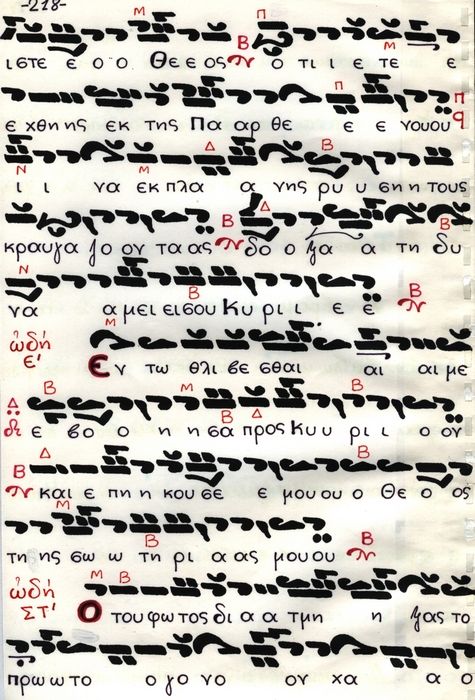 -218-
ιστε ε ο ο Θε ε ος ο τι ι ε τε ε
ε χθη ης εκ της Πα αρ θε ε ε νουου
ι ι να εκ πλα α νης ρυ υ ση η τους
κραυγα ζο ον τα ας δο ο ξα α τη δυ
να α μει ει σου Κυ ρι ι ε ε
ὠδή ε'
Εν τω θλι βε σθαι αι αι με
ε βο ο η η σα προς Κυ υ ρι ι ο ον
και ε πη η κου σε ε μου ου ο Θε ο ος
τη ης σω ω τη ρι α ας μου ου
ὠδή ΣΤ'
Ο του φω τος δι α α τμη η ξας το
πρω ω το ο γο νο ον χα α α ο